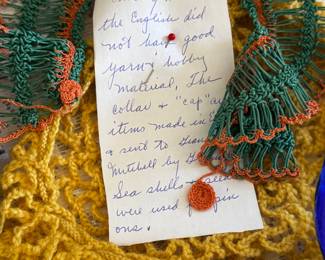 the English did
not have good
yarn & hobby
material. The
collar & "cap" are
items made in
& sent to
Mitchell by
Sea shells & seed
were used pin
ons.